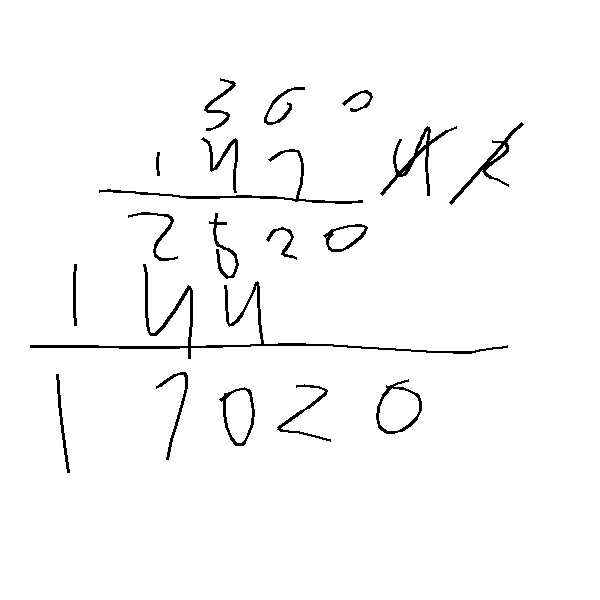 360
147 42
2520
144
17020